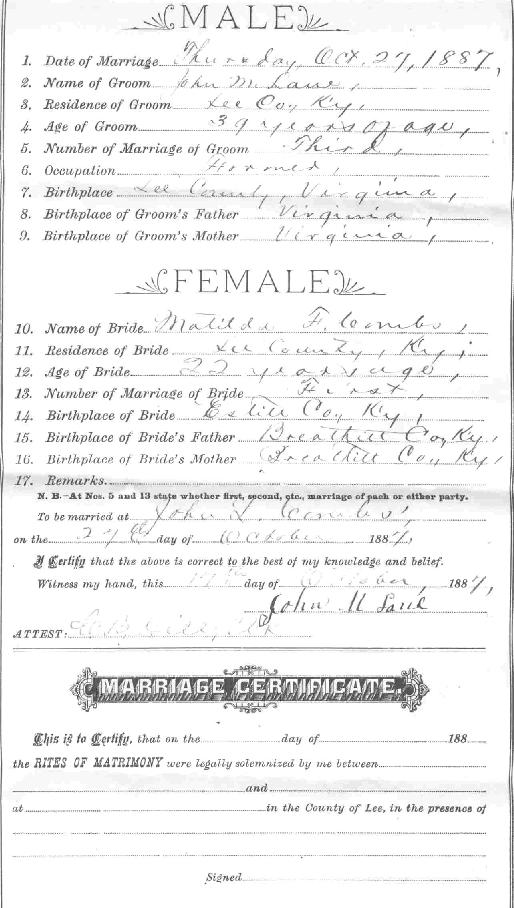 MALE
1. Date of Marriage Thursday Oct. 27, 1887,
2. Name of Groom John M. Lane,
3. Residence of Groom Lee Coy Ky,
4. Age of Groom 39 years of age,
5. Number of Marriage of Groom Third,
6. Occupation
7. Birthplace Lee County, Virginia,
8. Birthplace of Groom's Father Virginia,
9. Birthplace of Groom's Mother Virginia,
FEMALE
10. Name of Bride Matilda F. Combs,
11. Residence of Bride Lee County, Ky;
12. Age of Bride 22 years age,
13. Number of Marriage of Bride First,
14. Birthplace of Bride Estill Coy Ky,
15. Birthplace of Bride's Father Breathitt Coy Ky,
16. Birthplace of Bride's Mother Breathitt Coy Ky,
17. Remarks.
N. B.—At Nos. 5 and 13 state whether first, second, etc., marriage of each or either party.
To be married at John L. Combs,
on the 27th day of October 1887,
I Certify that the above is correct to the best of my knowledge and belief.
Witness my hand, this day of October, 1887,
John M Lane
ATTEST:
MARRIAGE CERTIFICATE.
This is to Certify, that on the day of 188
the RITES OF MATRIMONY were legally solemnized by me between
and
at in the County of Lee, in the presence of
Signed